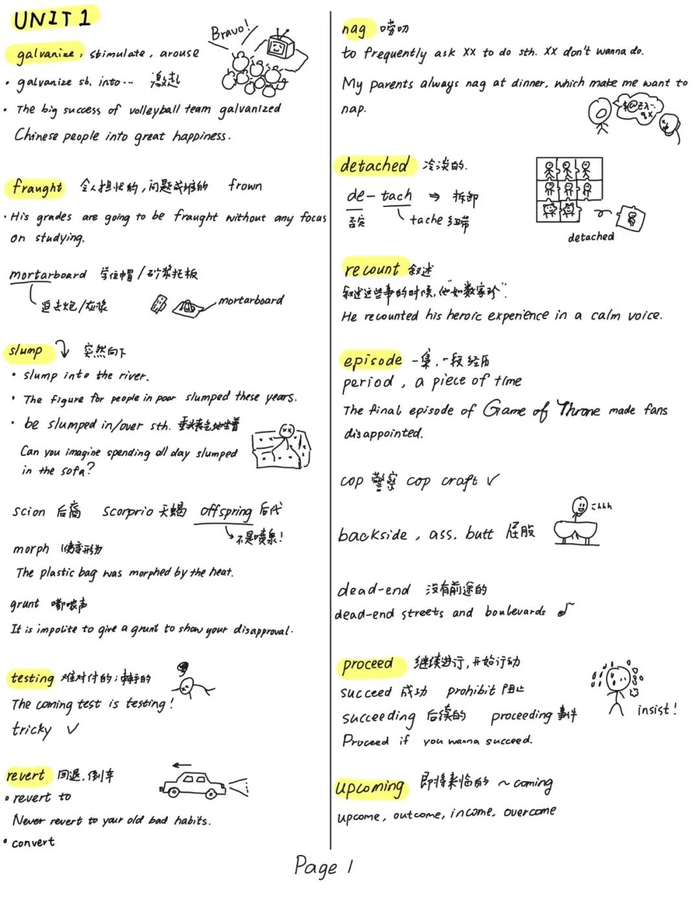 UNIT 1
Bravo!
galvanize, stimulate, arouse
• galvanize sb. into… 激起
• The big success of volleyball team galvanized
Chinese people into great happiness.
fraught 令人担忧的,问题成堆的 frown
• His grades are going to be fraught without any focus
on studying.
mortarboard 学位帽/砂浆托板
迫击炮/灰浆
mortarboard
slump 突然向下
• slump into the river.
• The figure for people in poor slumped these years.
• be slumped in/over sth.
Can you imagine spending all day slumped
in the sofa?
scion 后裔 scorprio 天蝎 offspring 后代
↳不是喷泉!
morph 使变形为
The plastic bag was morphed by the heat.
grunt 嘟哝声
It is impolite to give a grunt to show your disapproval.
testing 难对付的;棘手的
The coming test is testing!
tricky ✓
revert 回退,倒车
• revert to
Never revert to your old bad habits.
• convert
nag 唠叨
to frequently ask XX to do sth. XX don't wanna do.
My parents always nag at dinner, which make me want to
nap.
detached 冷淡的.
de-tach ⇒ 拆卸
否定 tache 绑
detached
recount 叙述
叙述这些事的时候,他"如数家珍".
He recounted his heroic experience in a calm voice.
episode 一集,一段经历
period, a piece of time
The final episode of Game of Throne made fans
disappointed.
cop 警察 cop craft ✓
backside, ass, butt 屁股
dead-end 没有前途的
dead-end streets and boulevards
proceed 继续进行,开始行动
succeed 成功 prohibit 阻止
succeeding 后续的 proceeding 事件
Proceed if you wanna succeed.
insist!
upcoming 即将来临的 ~coming
upcome, outcome, income, overcome
Page 1